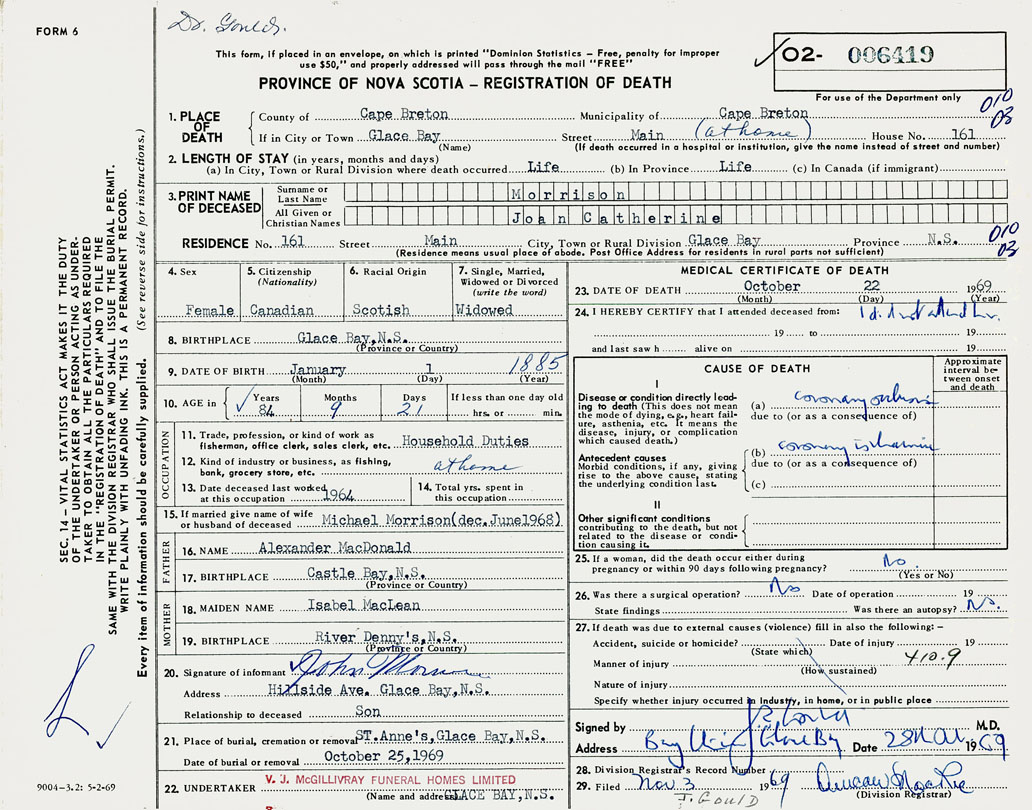 FORM 6
Dr. Gould.
This form, if placed in an envelope, on which is printed "Dominion Statistics – Free, penalty for improper
use $50," and properly addressed will pass through the mail "FREE"
PROVINCE OF NOVA SCOTIA – REGISTRATION OF DEATH
O2- 006419
For use of the Department only
1. PLACE OF DEATH County of Cape Breton Municipality of Cape Breton 010
If in City or Town Glace Bay Street Main (at home) House No. 161 03
(Name) (If death occurred in a hospital or institution, give the name instead of street and number)
2. LENGTH OF STAY (in years, months and days)
(a) In City, Town or Rural Division where death occurred Life (b) In Province Life (c) In Canada (if immigrant)
3. PRINT NAME OF DECEASED Surname or Last Name Morrison
All Given or Christian Names Joan Catherine
RESIDENCE No. 161 Street Main City, Town or Rural Division Glace Bay Province N.S. 010
(Residence means usual place of abode. Post Office Address for residents in rural parts not sufficient) 03
4. Sex Female
5. Citizenship (Nationality) Canadian
6. Racial Origin Scotish
7. Single, Married, Widowed or Divorced (write the word) Widowed
8. BIRTHPLACE Glace Bay,N.S.
(Province or Country)
9. DATE OF BIRTH January 1 1885
(Month) (Day) (Year)
10. AGE in Years 84 Months 9 Days 21 If less than one day old hrs. or min.
OCCUPATION
11. Trade, profession, or kind of work as
fisherman, office clerk, sales clerk, etc. Household Duties
12. Kind of industry or business, as fishing,
bank, grocery store, etc. at home
13. Date deceased last worked
at this occupation 1964
14. Total yrs. spent in
this occupation
15. If married give name of wife
or husband of deceased Michael Morrison(dec.June1968)
FATHER
16. NAME Alexander MacDonald
17. BIRTHPLACE Castle Bay,N.S.
(Province or Country)
MOTHER
18. MAIDEN NAME Isabel MacLean
19. BIRTHPLACE River Denny's,N.S.
(Province or Country)
20. Signature of informant John
Address Hillside Ave. Glace Bay,N.S.
Relationship to deceased Son
21. Place of burial, cremation or removal ST.Anne's,Glace Bay,N.S.
Date of burial or removal October 25,1969
22. UNDERTAKER V. J. McGILLIVRAY FUNERAL HOMES LIMITED
(Name and address) GLACE BAY,N.S.
MEDICAL CERTIFICATE OF DEATH
23. DATE OF DEATH October 22 1969
(Month) (Day) (Year)
24. I HEREBY CERTIFY that I attended deceased from: I did not attend her.
19 to 19
and last saw h alive on 19
CAUSE OF DEATH
Approximate interval between onset and death
I
Disease or condition directly leading
to death (This does not
mean the mode of dying, e.g., heart failure,
asthenia, etc. It means the
disease, injury, or complication
which caused death.)
(a) coronary
due to (or as a consequence of)
Antecedent causes
Morbid conditions, if any, giving
rise to the above cause, stating
the underlying condition last.
(b) coronary ischaemia
due to (or as a consequence of)
(c)
II
Other significant conditions
contributing to the death, but not
related to the disease or condition
causing it.
25. If a woman, did the death occur either during
pregnancy or within 90 days following pregnancy? No
(Yes or No)
26. Was there a surgical operation? No Date of operation 19
State findings Was there an autopsy? No.
27. If death was due to external causes (violence) fill in also the following:–
Accident, suicide or homicide? Date of injury 19
(State which)
Manner of injury 410.9
(How sustained)
Nature of injury
Specify whether injury occurred in industry, in home, or in public place
Signed by Gould M.D.
Address Glace Bay Date 28 1969
28. Division Registrar's Record Number
29. Filed Nov 3 1969
(Division Registrar)
J. GOULD
SEC. 14 – VITAL STATISTICS ACT MAKES IT THE DUTY
OF THE UNDERTAKER OR PERSON ACTING AS UNDERTAKER
TO OBTAIN ALL THE PARTICULARS REQUIRED
IN THE "REGISTRATION OF DEATH" AND TO FILE THE
SAME WITH THE DIVISION REGISTRAR WHO SHALL ISSUE THE BURIAL PERMIT.
WRITE PLAINLY WITH UNFADING INK. THIS IS A PERMANENT RECORD.
Every item of information should be carefully supplied. (See reverse side for instructions.)
9004–3.2: 5-2-69